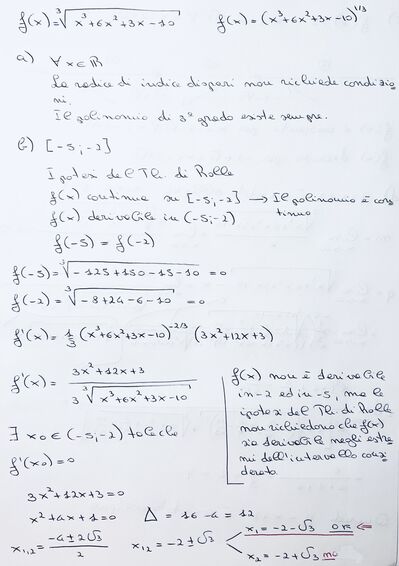 f(x) = ∛(x³+6x²+3x-10)    f(x) = (x³+6x²+3x-10)^1/3
a) ∀ x ∈ ℝ
La radice di indice dispari non richiede condizio
ni.
Il polinomio di 3° grado esiste sempre.
b) [-5;-2]
Ipotesi del Th. di Rolle
f(x) continua su [-5;-2] → Il polinomio è con
tinuo
f(x) derivabile in (-5;-2)
f(-5) = f(-2)
f(-5) = ∛(-125+150-15-10) = 0
f(-2) = ∛(-8+24-6-10) = 0
f'(x) = 1/3 (x³+6x²+3x-10)^-2/3 (3x²+12x+3)
f'(x) = (3x²+12x+3) / (3 ∛(x³+6x²+3x-10))
f(x) non è derivabile
in -2 ed in -5, ma le
ipotesi del Th. di Rolle
non richiedono che f(x)
sia derivabile negli estre
mi dell'intervallo consi
derato.
∃ x0 ∈ (-5;-2) tale che
f'(x0) = 0
3x²+12x+3=0
x²+4x+1=0    Δ = 16-4 = 12
x1,2 = (-4±2√3)/2    x1,2 = -2±√3
x1 = -2-√3 ok ⇐
x2 = -2+√3 no